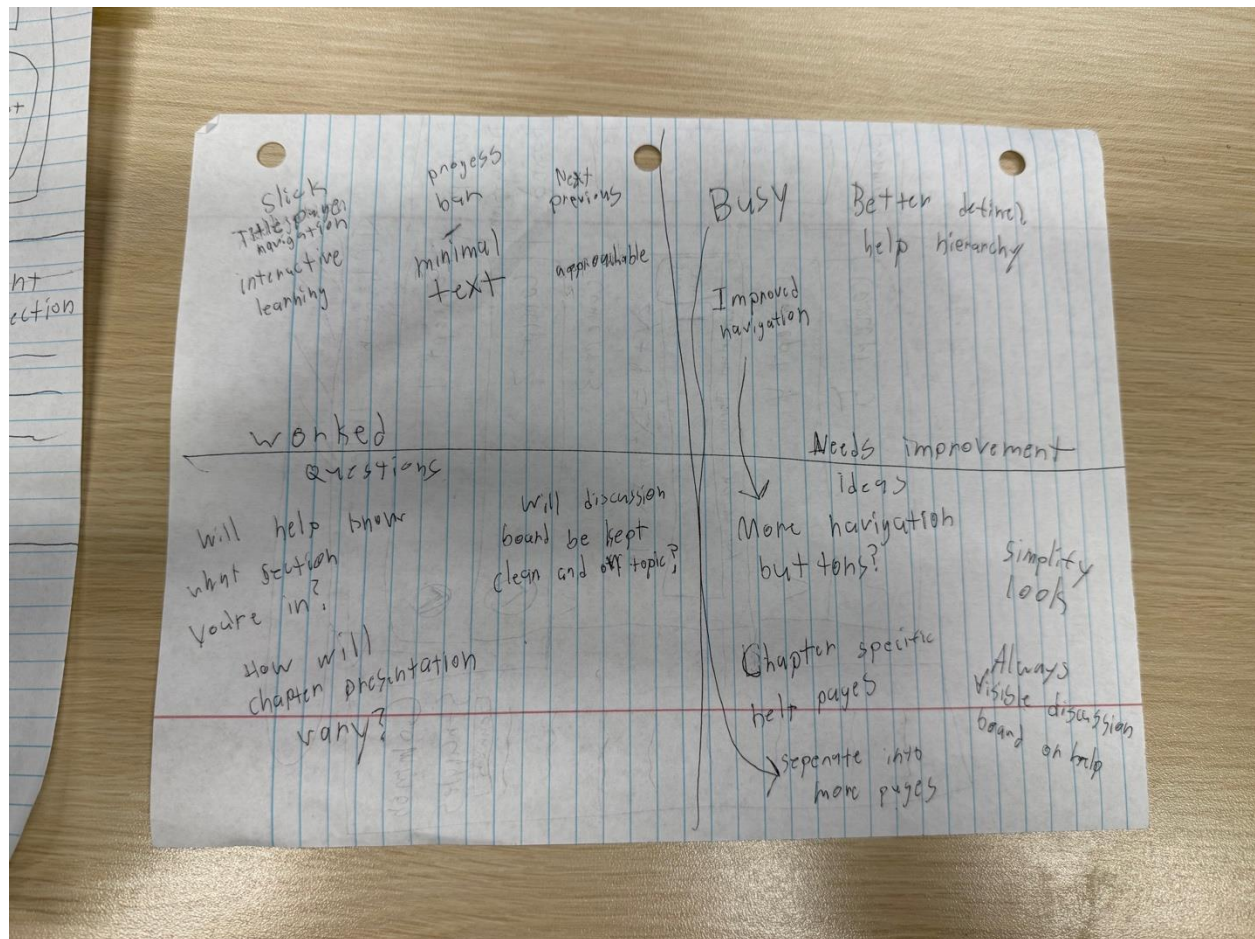 nt
ection
Slick
Title page
navigation
interactive
learning
progess
bar
minimal
text
Next
previous
approachable
worked
Busy
Better defined
help hierarchy
Improved
navigation
Needs improvement
Questions
Will help know
what section
you're in?
How will
chapter presentation
vary?
Will discussion
board be kept
clean and topic?
ideas
More navigation
buttons?
Simplify
look
Chapter specific
help pages
Always
visible discussion
board on help
seperate into
more pages